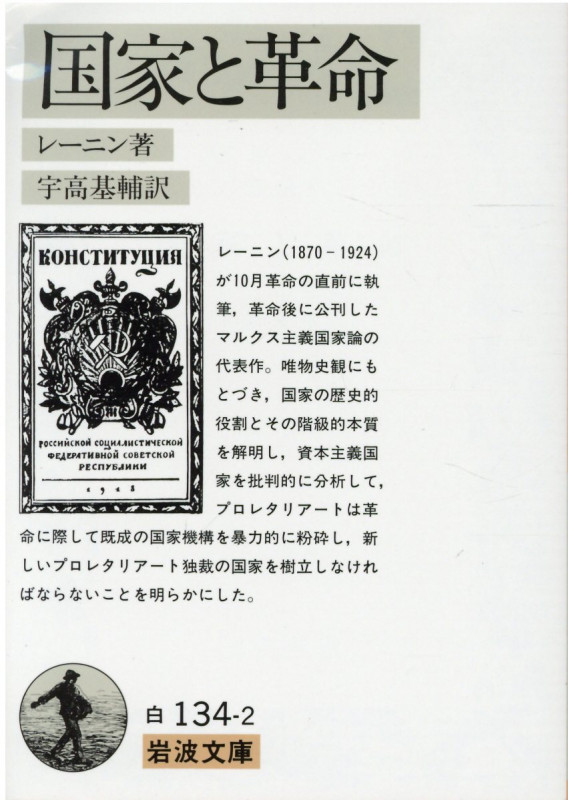 国家と革命
レーニン著
宇高基輔訳
КОНСТИТУЦИЯ
РОССИЙСКОЙ СОЦИАЛИСТИЧЕСКОЙ
ФЕДЕРАТИВНОЙ СОВЕТСКОЙ
РЕСПУБЛИКИ
1918
レーニン(1870-1924)
が10月革命の直前に執
筆，革命後に公刊した
マルクス主義国家論の
代表作。唯物史観にも
とづき，国家の歴史的
役割とその階級的本質
を解明し，資本主義国
家を批判的に分析して，
プロレタリアートは革
命に際して既成の国家機構を暴力的に粉砕し，新
しいプロレタリアート独裁の国家を樹立しなけれ
ばならないことを明らかにした。
白 134-2
岩波文庫